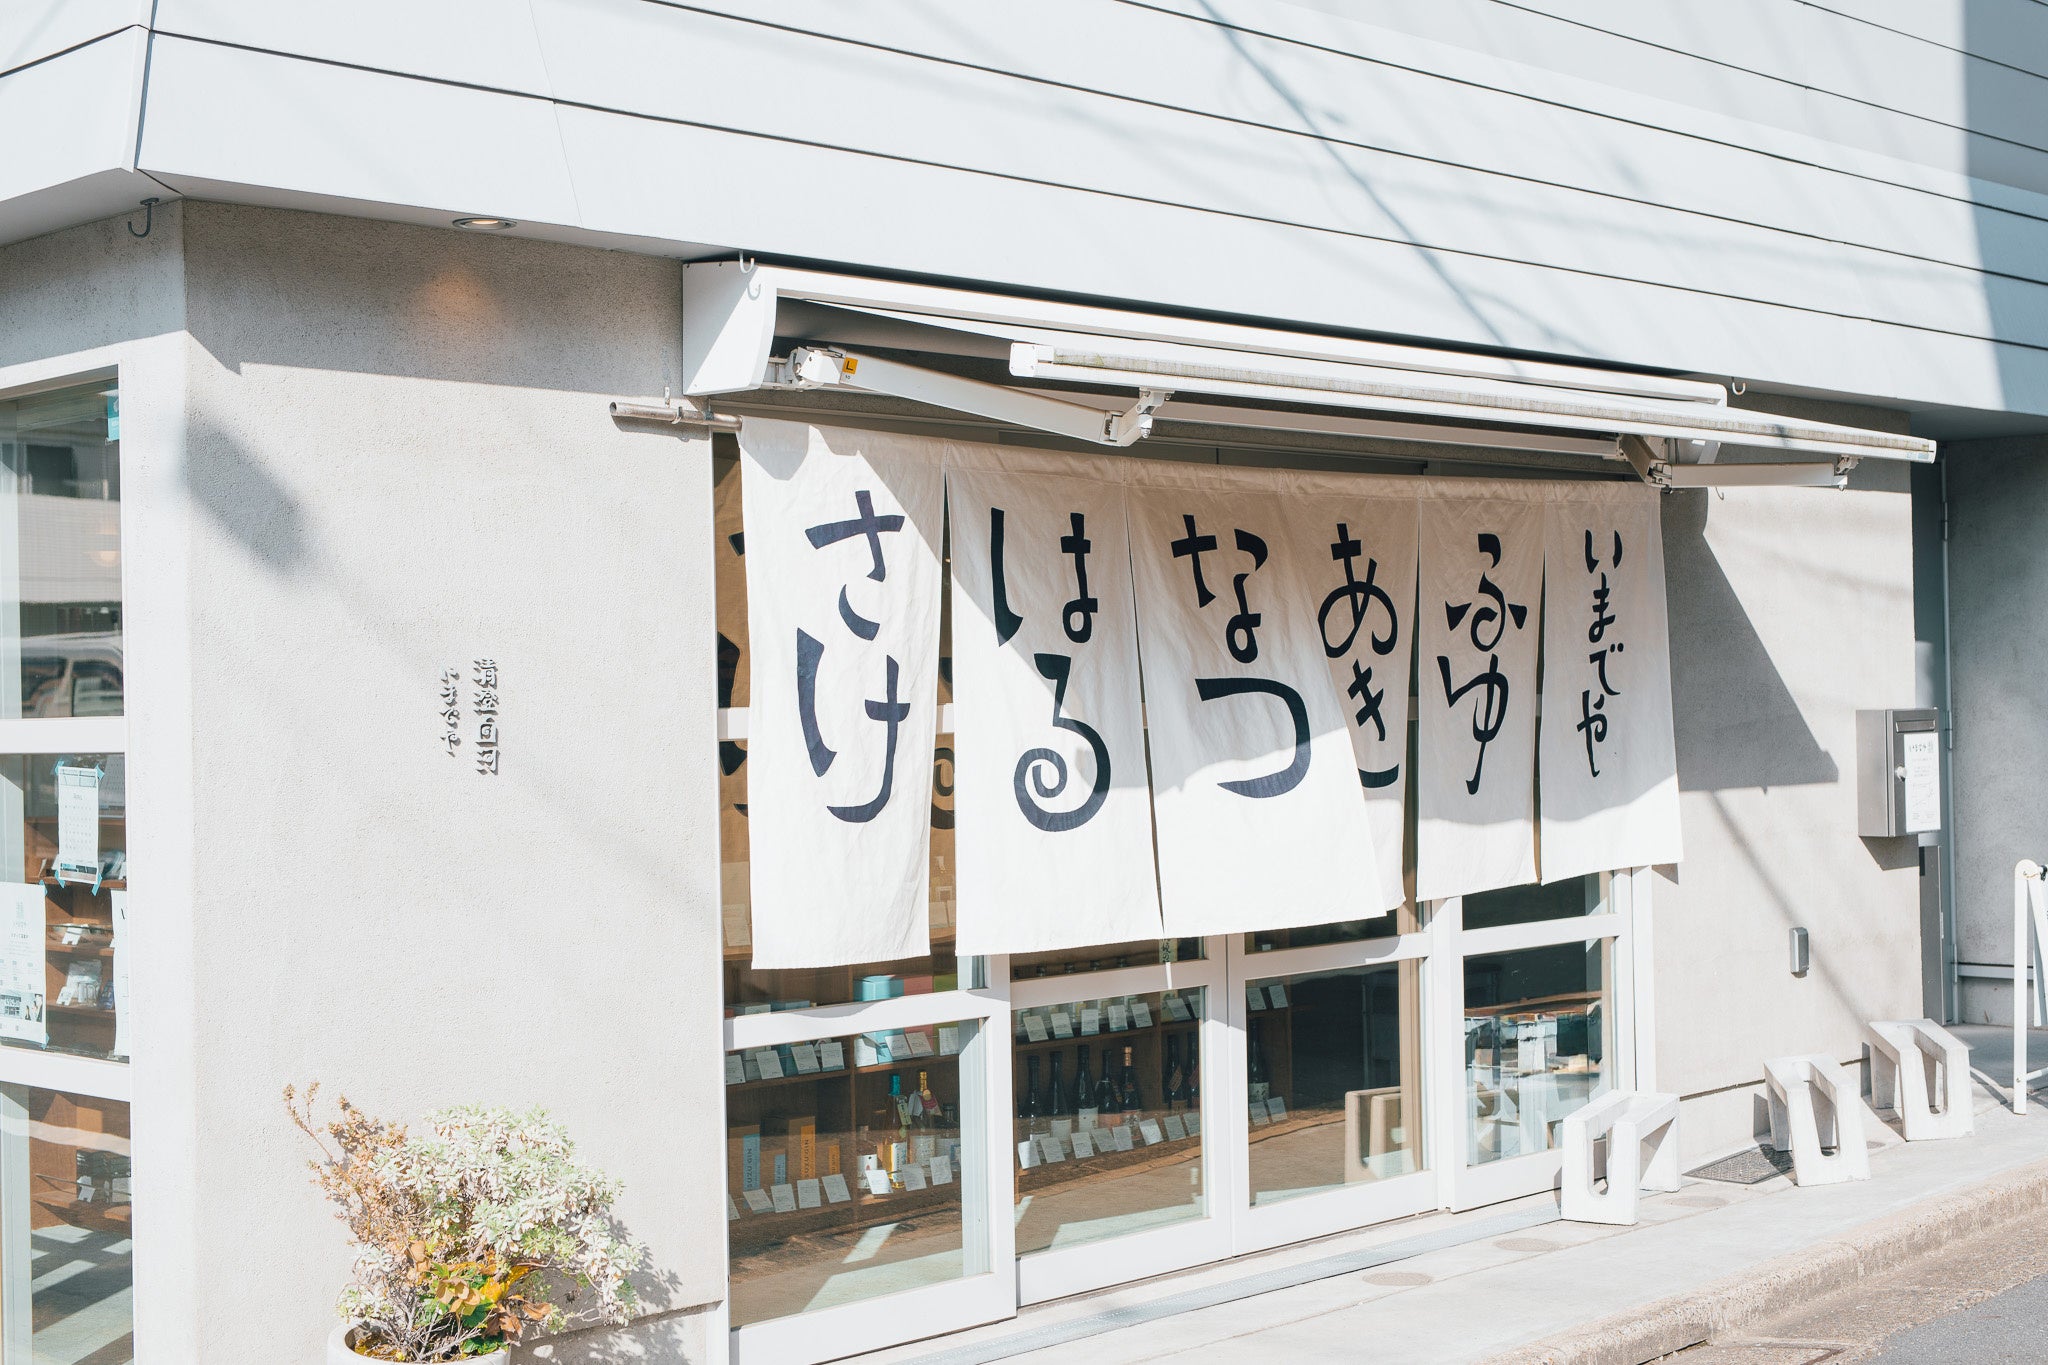 さけ
はる
なつ
あき
ふゆ
いまでや
清澄白河
いまでや
YUZU GIN
YUZU GIN
L